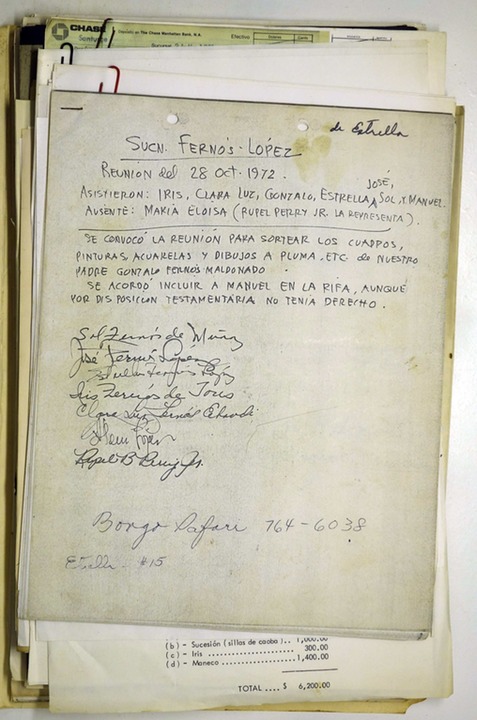 CHASE
Depósito en The Chase Manhattan Bank, N.A.
Efectivo
Santurce
de Estrella
SUCN. FERNÓS-LÓPEZ
REUNIÓN del 28 OCT. 1972.
ASISTIERON: IRIS, CLARA LUZ, GONZALO, ESTRELLA, JOSÉ, SOL, Y MANUEL.
AUSENTE: MARÍA ELOISA (RUPEL PERRY JR. LA REPRESENTA).
SE CONVOCÓ LA REUNIÓN PARA SORTEAR LOS CUADROS,
PINTURAS ACUARELAS Y DIBUJOS A PLUMA, ETC de NUESTRO
PADRE GONZALO FERNÓS MALDONADO.
SE ACORDÓ INCLUIR A MANUEL EN LA RIFA, AUNQUE
POR DISPOSICION TESTAMENTARIA NO TENÍA DERECHO.
Sol Fernós de Muñoz
José Fernós López
Iris Fernós de Toro
Clara Luz Fernós
Bongo Safari 764-6038
Estrella - $15
(b) - Sucesión (sillas de caoba).. 1,000.00
(c) - Iris 300.00
(d) - Maneco 1,400.00
TOTAL .... $ 6,200.00